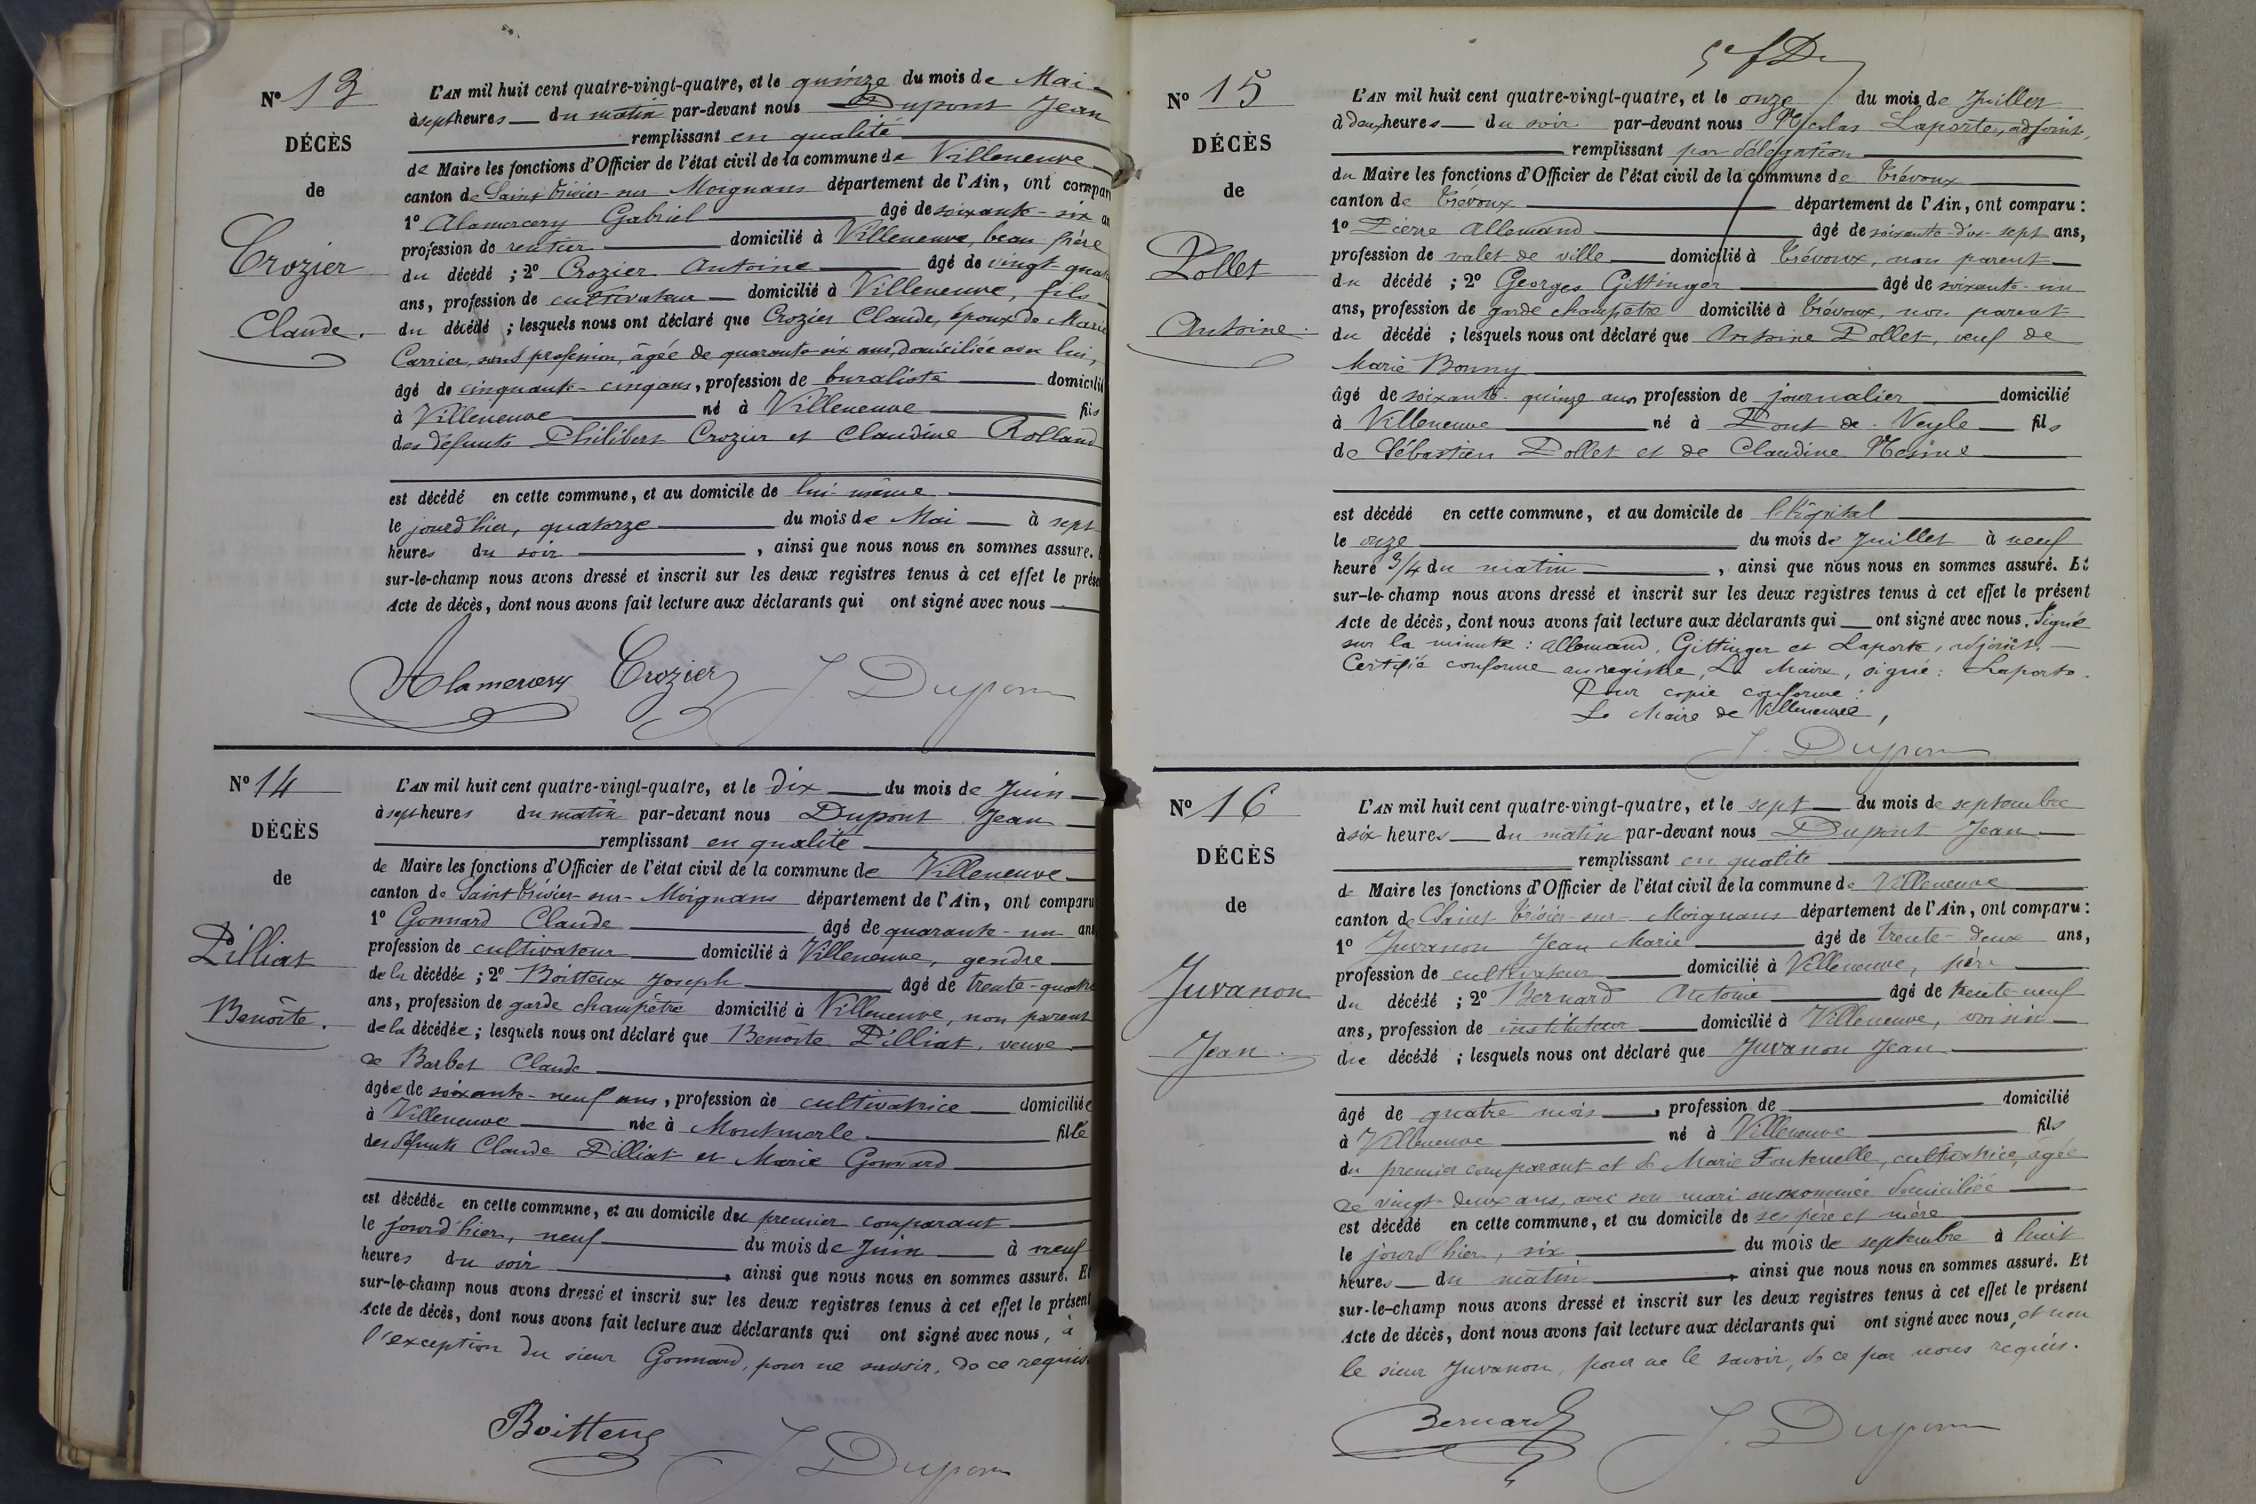 Nº 13
DÉCÈS
de
Crozier
Claude.
L'AN mil huit cent quatre-vingt-quatre, et le quinze du mois de Mai
à sept heures du matin par-devant nous Dupont Jean
remplissant en qualité
de Maire les fonctions d'Officier de l'état civil de la commune de Villeneuve
canton de Saint Trivier-sur-Moignans département de l'Ain, ont compar
1º Alamercery Gabriel âgé de soixante-six an
profession de rentier domicilié à Villeneuve, beau frère
du décédé ; 2º Crozier Antoine âgé de vingt quat
ans, profession de cultivateur domicilié à Villeneuve, fils
du décédé ; lesquels nous ont déclaré que Crozier Claude, époux de Marie
Carrier, sans profession, âgée de quarante-six ans, domiciliée avec lui,
âgé de cinquante-cinq ans, profession de buraliste domicilié
à Villeneuve né à Villeneuve fils
des défunts Philibert Crozier et Claudine Rolland
est décédé en cette commune, et au domicile de lui-même
le jourd'hier, quatorze du mois de Mai à sept
heures du soir, ainsi que nous nous en sommes assuré.
sur-le-champ nous avons dressé et inscrit sur les deux registres tenus à cet effet le prése
Acte de décès, dont nous avons fait lecture aux déclarants qui ont signé avec nous
Alamercery Crozier J. Dupont
Nº 14
DÉCÈS
de
Pilliat
Benoîte.
L'AN mil huit cent quatre-vingt-quatre, et le dix du mois de Juin
à sept heures du matin par-devant nous Dupont Jean
remplissant en qualité
de Maire les fonctions d'Officier de l'état civil de la commune de Villeneuve
canton de Saint Trivier-sur-Moignans département de l'Ain, ont comparu
1º Gonnard Claude âgé de quarante-un ans
profession de cultivateur domicilié à Villeneuve, gendre
de la décédée ; 2º Boitteux Joseph âgé de trente-quatre
ans, profession de garde champêtre domicilié à Villeneuve, non parent
de la décédée ; lesquels nous ont déclaré que Benoîte Pilliat, veuve
de Barbet Claude
âgée de soixante-neuf ans, profession de cultivatrice domiciliée
à Villeneuve née à Montmerle fille
des défunts Claude Pilliat et Marie Gonnard
est décédée en cette commune, et au domicile du premier comparant
le jourd'hier, neuf du mois de Juin à neuf
heures du soir, ainsi que nous nous en sommes assuré. Et
sur-le-champ nous avons dressé et inscrit sur les deux registres tenus à cet effet le présent
Acte de décès, dont nous avons fait lecture aux déclarants qui ont signé avec nous, à
l'exception du sieur Gonnard, pour ne savoir, de ce requis
Boitteux J. Dupont
Nº 15
DÉCÈS
de
Pollet
Antoine.
L'AN mil huit cent quatre-vingt-quatre, et le onze du mois de Juillet
à deux heures du soir par-devant nous Nicolas Laporte, adjoint,
remplissant par délégation
du Maire les fonctions d'Officier de l'état civil de la commune de Trévoux
canton de Trévoux département de l'Ain, ont comparu :
1º Pierre Allemand âgé de soixante-dix-sept ans,
profession de valet de ville domicilié à Trévoux, non parent
du décédé ; 2º Georges Gittinger âgé de soixante-un
ans, profession de garde champêtre domicilié à Trévoux, non parent
du décédé ; lesquels nous ont déclaré que Antoine Pollet, veuf de
Marie Bonny
âgé de soixante-quinze ans profession de journalier domicilié
à Villeneuve né à Pont de Veyle fils
de Sébastien Pollet et de Claudine
est décédé en cette commune, et au domicile de l'hôpital
le onze du mois de Juillet à neuf
heure 3/4 du matin, ainsi que nous nous en sommes assuré. Et
sur-le-champ nous avons dressé et inscrit sur les deux registres tenus à cet effet le présent
Acte de décès, dont nous avons fait lecture aux déclarants qui ont signé avec nous. Signé
sur la minute : Allemand, Gittinger et Laporte, adjoint.
Certifié conforme au registre, Le Maire, signé : Laporte.
Pour copie conforme :
Le Maire de Villeneuve,
J. Dupont
Nº 16
DÉCÈS
de
Juvanon
Jean.
L'AN mil huit cent quatre-vingt-quatre, et le sept du mois de septembre
à six heures du matin par-devant nous Dupont Jean
remplissant en qualité
de Maire les fonctions d'Officier de l'état civil de la commune de Villeneuve
canton de Saint Trivier-sur-Moignans département de l'Ain, ont comparu :
1º Juvanon Jean Marie âgé de trente-deux ans,
profession de cultivateur domicilié à Villeneuve, père
du décédé ; 2º Bernard Antoine âgé de trente-neuf
ans, profession de instituteur domicilié à Villeneuve, voisin
du décédé ; lesquels nous ont déclaré que Juvanon Jean
âgé de quatre mois, profession de domicilié
à Villeneuve né à Villeneuve fils
du premier comparant et de Marie Fontenelle, cultivatrice, âgée
de vingt-deux ans, avec son mari susnommé domiciliée
est décédé en cette commune, et au domicile de ses père et mère
le jourd'hier, six du mois de septembre à huit
heures du matin, ainsi que nous nous en sommes assuré. Et
sur-le-champ nous avons dressé et inscrit sur les deux registres tenus à cet effet le présent
Acte de décès, dont nous avons fait lecture aux déclarants qui ont signé avec nous, et non
le sieur Juvanon, pour ne le savoir, de ce par nous requis.
Bernard J. Dupont